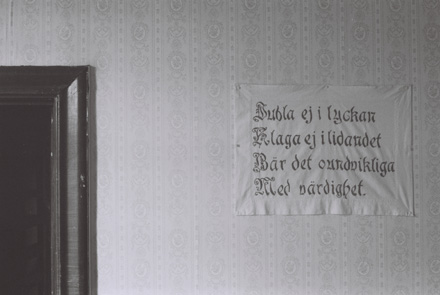 Jubla ej i lyckan
Klaga ej i lidandet
Bär det oundvikliga
Med värdighet.